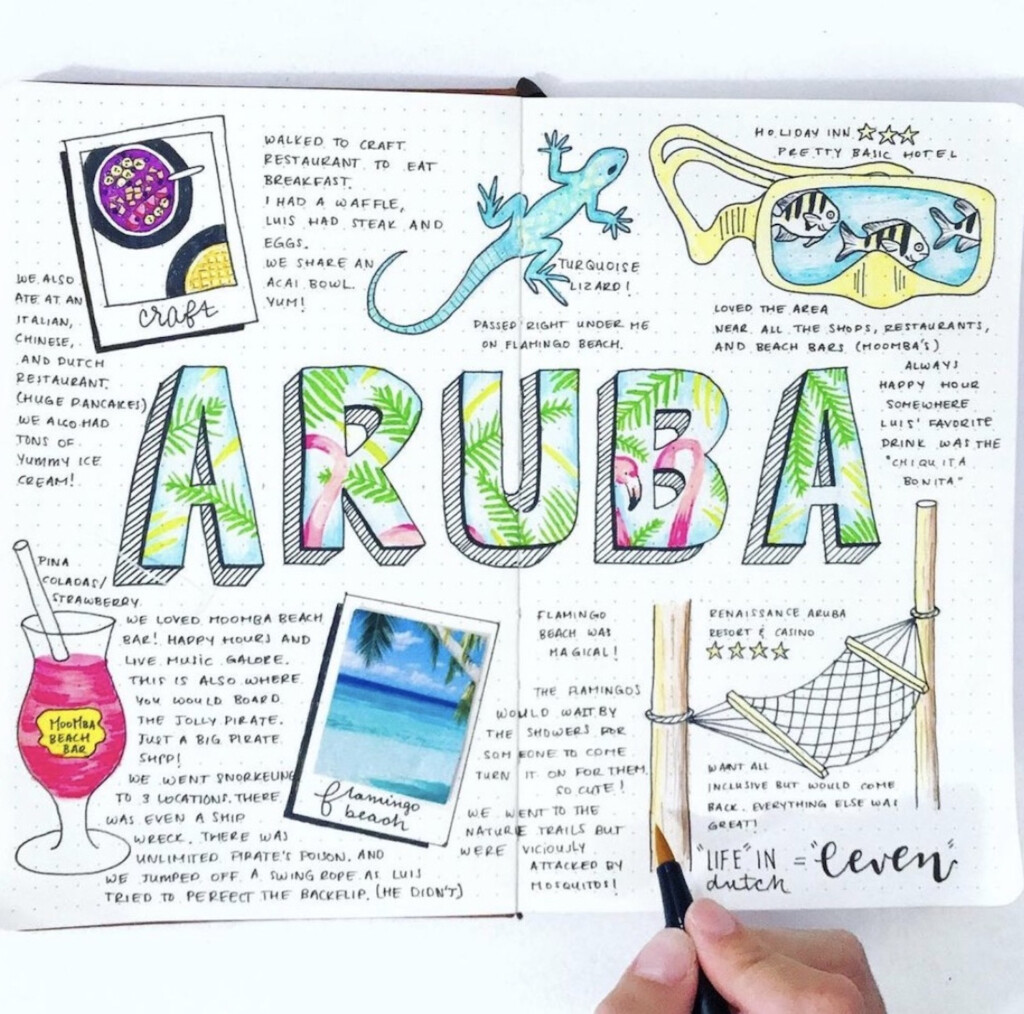 WALKED TO CRAFT
RESTAURANT TO EAT
BREAKFAST.
I HAD A WAFFLE,
LUIS HAD STEAK AND
EGGS.
WE SHARE AN
ACAI BOWL.
YUM!
craft
WE ALSO
ATE AT AN
ITALIAN,
CHINESE,
AND DUTCH
RESTAURANT.
(HUGE PANCAKES)
WE ALSO HAD
TONS OF
YUMMY ICE
CREAM!
TURQUOISE
LIZARD!
PASSED RIGHT UNDER ME
ON FLAMINGO BEACH.
HOLIDAY INN
PRETTY BASIC HOTEL
LOVED THE AREA
NEAR ALL THE SHOPS, RESTAURANTS,
AND BEACH BARS (MOOMBA'S)
ALWAYS
HAPPY HOUR
SOMEWHERE
LUIS' FAVORITE
DRINK WAS THE
"CHIQUITA
BONITA"
ARUBA
PINA
COLADAS/
STRAWBERRY
MOOMBA
BEACH
BAR
WE LOVED MOOMBA BEACH
BAR! HAPPY HOURS AND
LIVE MUSIC GALORE.
THIS IS ALSO WHERE
YOU WOULD BOARD
THE JOLLY PIRATE.
JUST A BIG PIRATE
SHIP!
WE WENT SNORKELING
TO 3 LOCATIONS. THERE
WAS EVEN A SHIP
WRECK. THERE WAS
UNLIMITED PIRATE'S POISON. AND
WE JUMPED OFF A SWING ROPE AS LUIS
TRIED TO PERFECT THE BACKFLIP. (HE DIDN'T)
flamingo
beach
FLAMINGO
BEACH WAS
MAGICAL!
THE FLAMINGOS
WOULD WAIT BY
THE SHOWERS FOR
SOMEONE TO COME
TURN IT ON FOR THEM.
SO CUTE!
WE WENT TO THE
NATURE TRAILS BUT
WERE VICIOUSLY
ATTACKED BY
MOSQUITOS!
RENAISSANCE ARUBA
RESORT & CASINO
WANT ALL
INCLUSIVE BUT WOULD COME
BACK. EVERYTHING ELSE WAS
GREAT!
"LIFE" IN dutch = "leven"